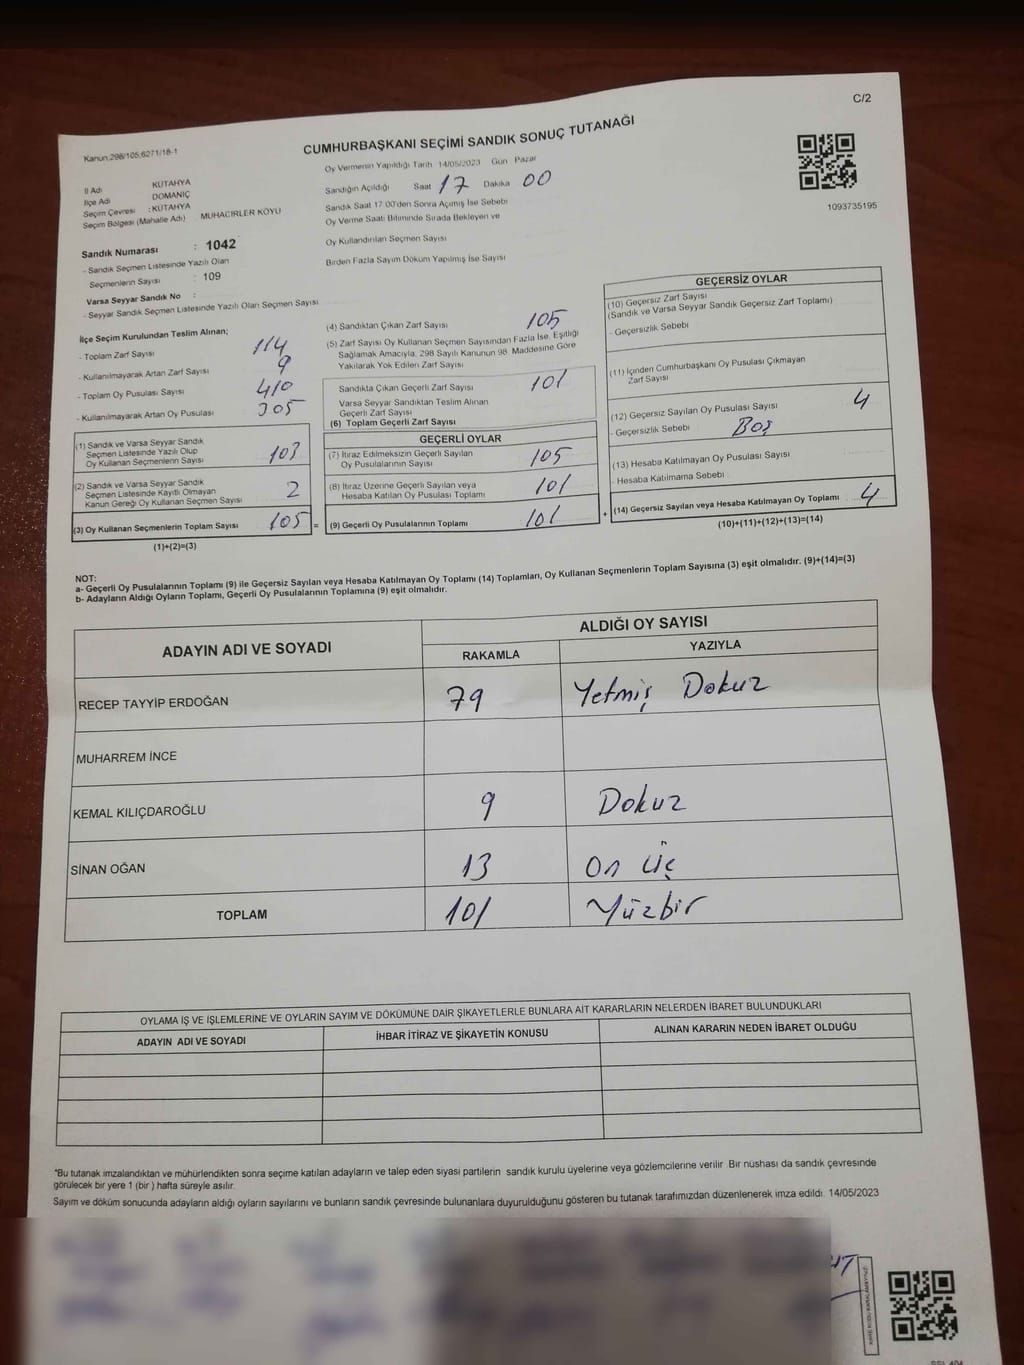 C/2
Kanun:298/105,6271/18-1
CUMHURBAŞKANI SEÇİMİ SANDIK SONUÇ TUTANAĞI
1093735195
İl Adı KÜTAHYA
İlçe Adı DOMANİÇ
Seçim Çevresi : KÜTAHYA
Seçim Bölgesi (Mahalle Adı) MUHACİRLER KÖYÜ
Sandık Numarası : 1042
- Sandık Seçmen Listesinde Yazılı Olan
Seçmenlerin Sayısı : 109
Varsa Seyyar Sandık No :
- Seyyar Sandık Seçmen Listesinde Yazılı Olan Seçmen Sayısı
Oy Vermenin Yapıldığı Tarih 14/05/2023 Gün Pazar
Sandığın Açıldığı Saat 17 Dakika 00
Sandık Saat 17.00'den Sonra Açılmış İse Sebebi
Oy Verme Saati Bitiminde Sırada Bekleyen ve
Oy Kullandırılan Seçmen Sayısı
Birden Fazla Sayım Döküm Yapılmış İse Sayısı
İlçe Seçim Kurulundan Teslim Alınan;
- Toplam Zarf Sayısı 114
- Kullanılmayarak Artan Zarf Sayısı 9
- Toplam Oy Pusulası Sayısı 410
- Kullanılmayarak Artan Oy Pusulası 305
(1) Sandık ve Varsa Seyyar Sandık
Seçmen Listesinde Yazılı Olup
Oy Kullanan Seçmenlerin Sayısı 103
(2) Sandık ve Varsa Seyyar Sandık
Seçmen Listesinde Kayıtlı Olmayan
Kanun Gereği Oy Kullanan Seçmen Sayısı 2
(3) Oy Kullanan Seçmenlerin Toplam Sayısı 105 =
(1)+(2)=(3)
(4) Sandıktan Çıkan Zarf Sayısı 105
(5) Zarf Sayısı Oy Kullanan Seçmen Sayısından Fazla İse, Eşitliği
Sağlamak Amacıyla, 298 Sayılı Kanunun 98. Maddesine Göre
Yakılarak Yok Edilen Zarf Sayısı
Sandıkta Çıkan Geçerli Zarf Sayısı 101
Varsa Seyyar Sandıktan Teslim Alınan
Geçerli Zarf Sayısı
(6) Toplam Geçerli Zarf Sayısı
GEÇERLİ OYLAR
(7) İtiraz Edilmeksizin Geçerli Sayılan
Oy Pusulalarının Sayısı 105
(8) İtiraz Üzerine Geçerli Sayılan veya
Hesaba Katılan Oy Pusulası Toplamı 101
(9) Geçerli Oy Pusulalarının Toplamı 101 +
GEÇERSİZ OYLAR
(10) Geçersiz Zarf Sayısı
(Sandık ve Varsa Seyyar Sandık Geçersiz Zarf Toplamı)
- Geçersizlik Sebebi
(11) İçinden Cumhurbaşkanı Oy Pusulası Çıkmayan
Zarf Sayısı
(12) Geçersiz Sayılan Oy Pusulası Sayısı 4
- Geçersizlik Sebebi Boş
(13) Hesaba Katılmayan Oy Pusulası Sayısı
- Hesaba Katılmama Sebebi
(14) Geçersiz Sayılan veya Hesaba Katılmayan Oy Toplamı 4
(10)+(11)+(12)+(13)=(14)
NOT:
a- Geçerli Oy Pusulalarının Toplamı (9) ile Geçersiz Sayılan veya Hesaba Katılmayan Oy Toplamı (14) Toplamları, Oy Kullanan Seçmenlerin Toplam Sayısına (3) eşit olmalıdır. (9)+(14)=(3)
b- Adayların Aldığı Oyların Toplamı, Geçerli Oy Pusulalarının Toplamına (9) eşit olmalıdır.
ADAYIN ADI VE SOYADI ALDIĞI OY SAYISI
RAKAMLA YAZIYLA
RECEP TAYYİP ERDOĞAN 79 Yetmiş Dokuz
MUHARREM İNCE
KEMAL KILIÇDAROĞLU 9 Dokuz
SİNAN OĞAN 13 On üç
TOPLAM 101 Yüzbir
OYLAMA İŞ VE İŞLEMLERİNE VE OYLARIN SAYIM VE DÖKÜMÜNE DAİR ŞİKAYETLERLE BUNLARA AİT KARARLARIN NELERDEN İBARET BULUNDUKLARI
ADAYIN ADI VE SOYADI İHBAR İTİRAZ VE ŞİKAYETİN KONUSU ALINAN KARARIN NEDEN İBARET OLDUĞU
*Bu tutanak imzalandıktan ve mühürlendikten sonra seçime katılan adayların ve talep eden siyasi partilerin sandık kurulu üyelerine veya gözlemcilerine verilir. Bir nüshası da sandık çevresinde
görülecek bir yere 1 (bir) hafta süreyle asılır.
Sayım ve döküm sonucunda adayların aldığı oyların sayılarını ve bunların sandık çevresinde bulunanlara duyurulduğunu gösteren bu tutanak tarafımızdan düzenlenerek imza edildi. 14/05/2023